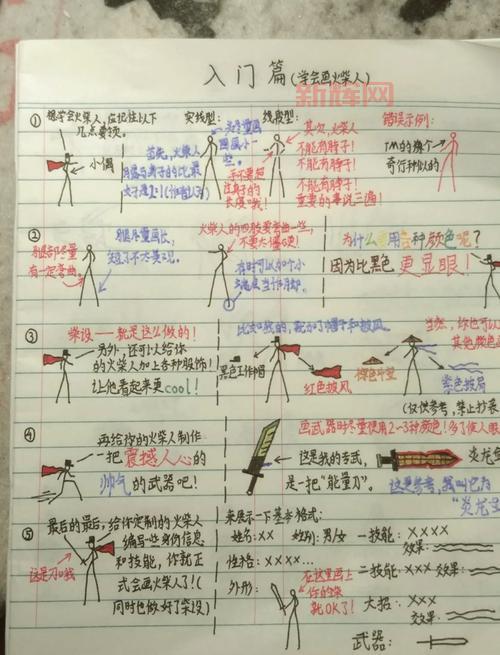 入门篇(学会画火柴人)
新辉网
①
想学会火柴人,应记住以下
几点要领。
小偶
首先,火柴人
实线型:
线段型:
其次,火柴人
不能有脖子!
不能有脖子!
不能有脖子!
重要的事说三遍!
手不要超
过身子的
长度哦!
错误示例:
奇行种似的
②
腿部尽量
有一定弯曲。
腿尽量画长,
短了不太美观。
火柴人的四肢要弯曲一些,
不要太僵硬!
有时可以加个小
为什么要用各种颜色呢?
因为比黑色更显眼!
③
柴设——就是这么做的!
另外,还可以给你
的火柴人加上各种服饰!
让他看起来更cool!
比如我的,就加了帽子和披风。
黑色工作帽
红色披风
棕色斗笠
当然,你也可以
其他颜色
(仅供参考,禁止抄袭
④
再给你的火柴人制作
一把震撼人心的
帅气的武器吧!
画武器时尽量使用2~3种颜色!多了
这是我的专武,
是一把“能量刀”。
炎龙剑
这是参考,我叫它为
“炎龙
⑤
最后的最后,给你定制的火柴人
编写一些身份信息
和技能,你就正
式会画火柴人了!(
同时也做好了柴设)
这是刀哦
来展示一下基本格式:
姓名:×× 性别:男/女 一技能:××××
效果:
性格:×××× 二技能:×× 效果:
外形:
在这里画上
你的柴
就OK了!
大招:××
效果:
武器: